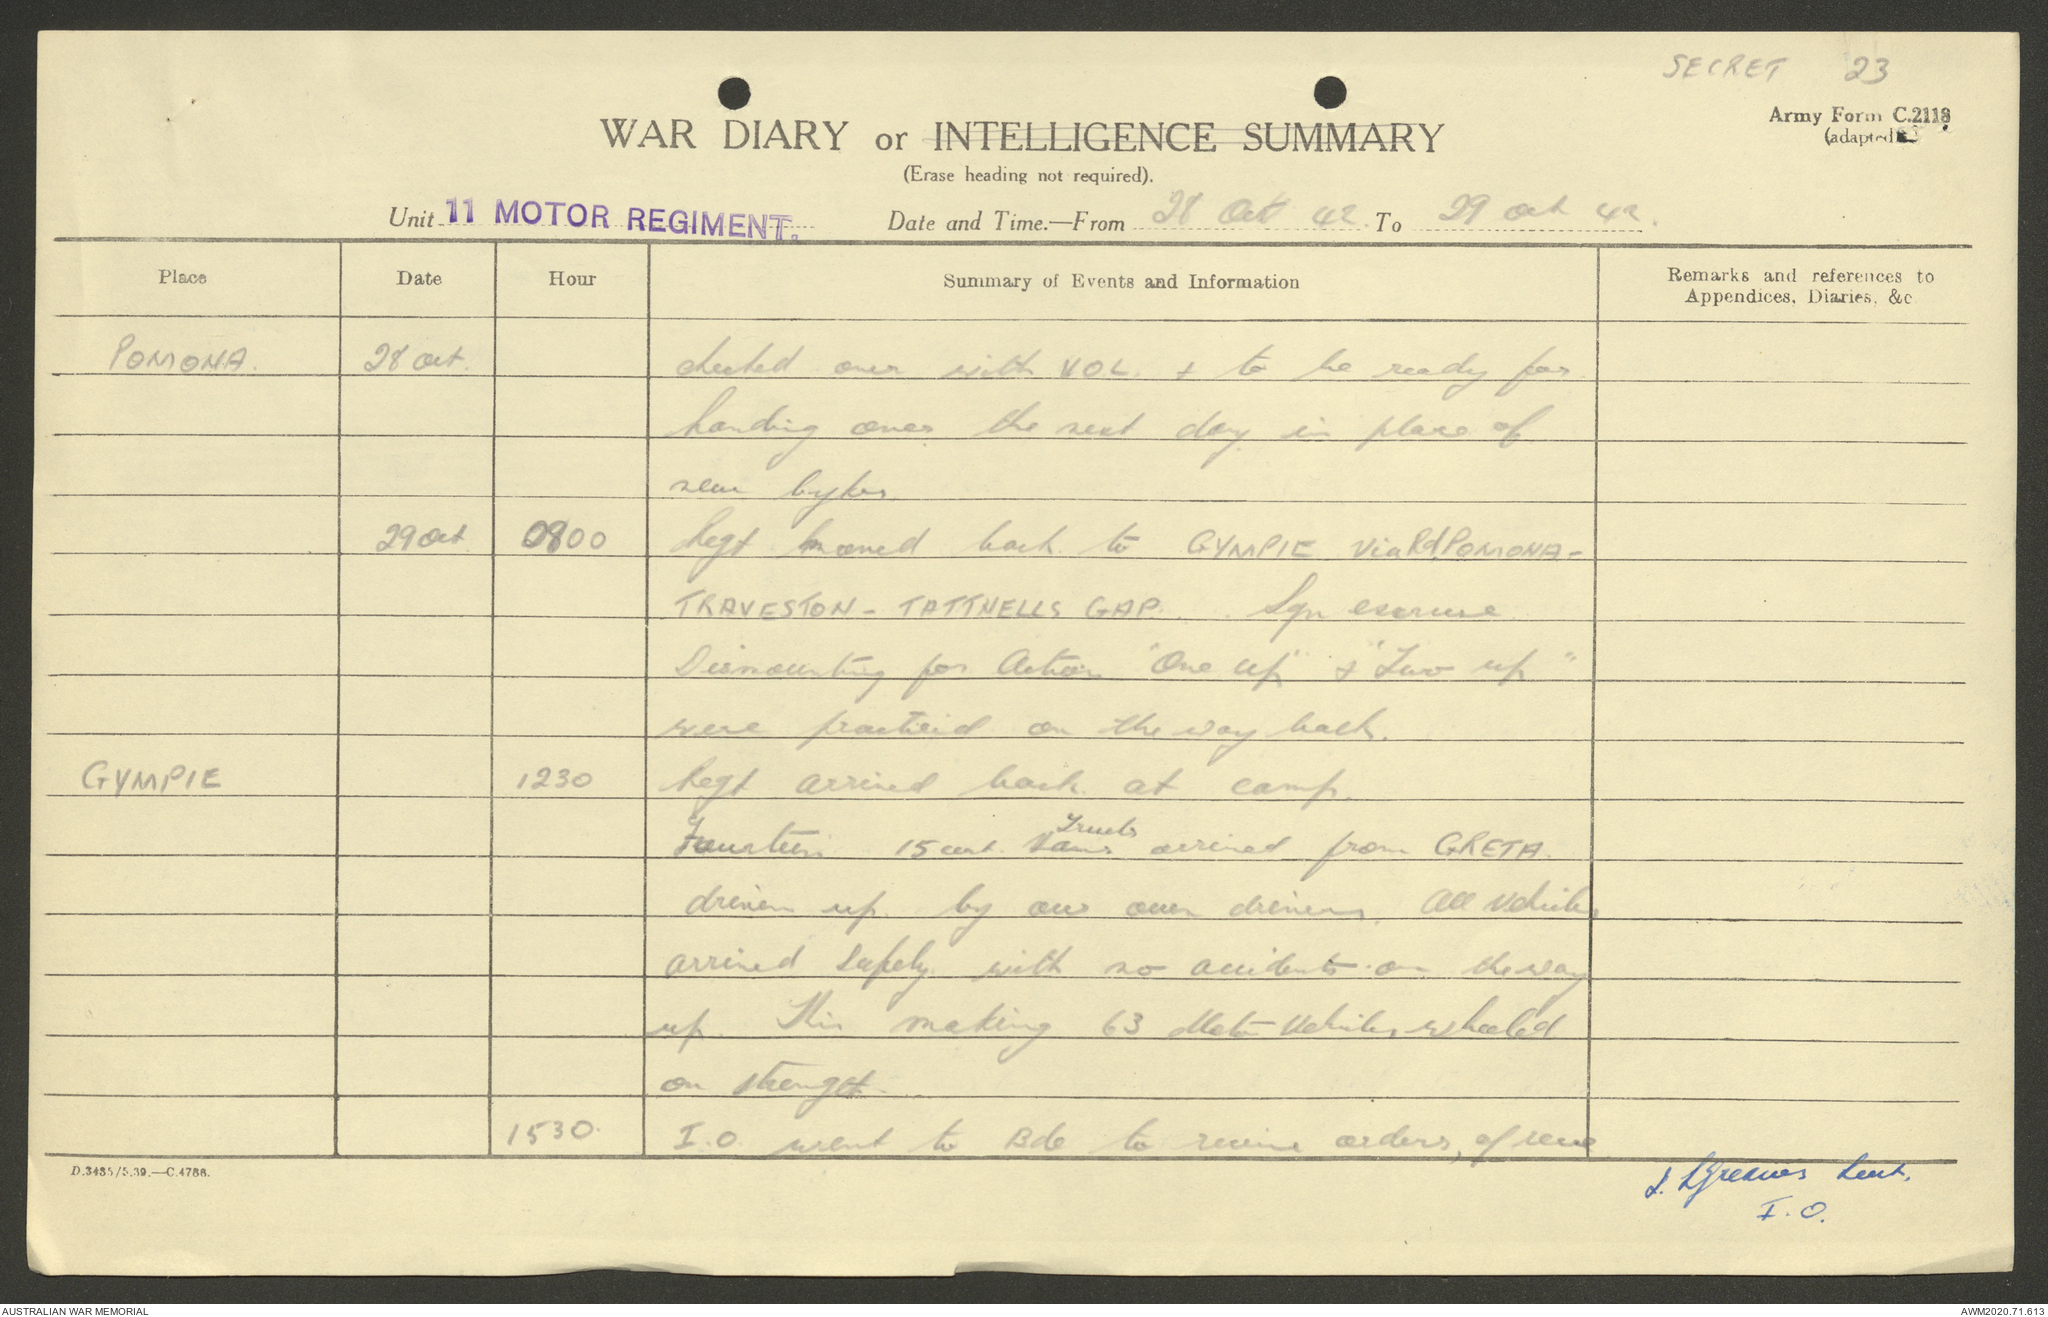 SECRET 23
Army Form C.2118
(adapted)
WAR DIARY or INTELLIGENCE SUMMARY
(Erase heading not required).
Unit 11 MOTOR REGIMENT. Date and Time.—From 28 Oct 42 To 29 Oct 42.
Place Date Hour Summary of Events and Information Remarks and references to
Appendices, Diaries, &c
POMONA. 28 Oct. checked over with VOL. & to be ready for
handing over the next day in place of
new bykes.
29 Oct 0800 Regt moved back to GYMPIE via Rd, POMONA-
TRAVESTON - TATTNELLS GAP. Sqn exercise
Dismounting for Action "One up" & "Two up"
were practicid on the way back.
GYMPIE 1230 Regt arrived back at camp.
Trucks
Fourteen 15 cwt. Vans arrived from GRETA.
driven up by our own drivers. All Vehicles
arrived safely with no accidents on the way
up. This making 63 Motor Vehicles wheeled
on strength
1530. I.O. went to Bde to receive orders, of
D.3435/5.39.—C.4786.
L. Greaves Lieut.
I.O.
AUSTRALIAN WAR MEMORIAL AWM2020.71.613